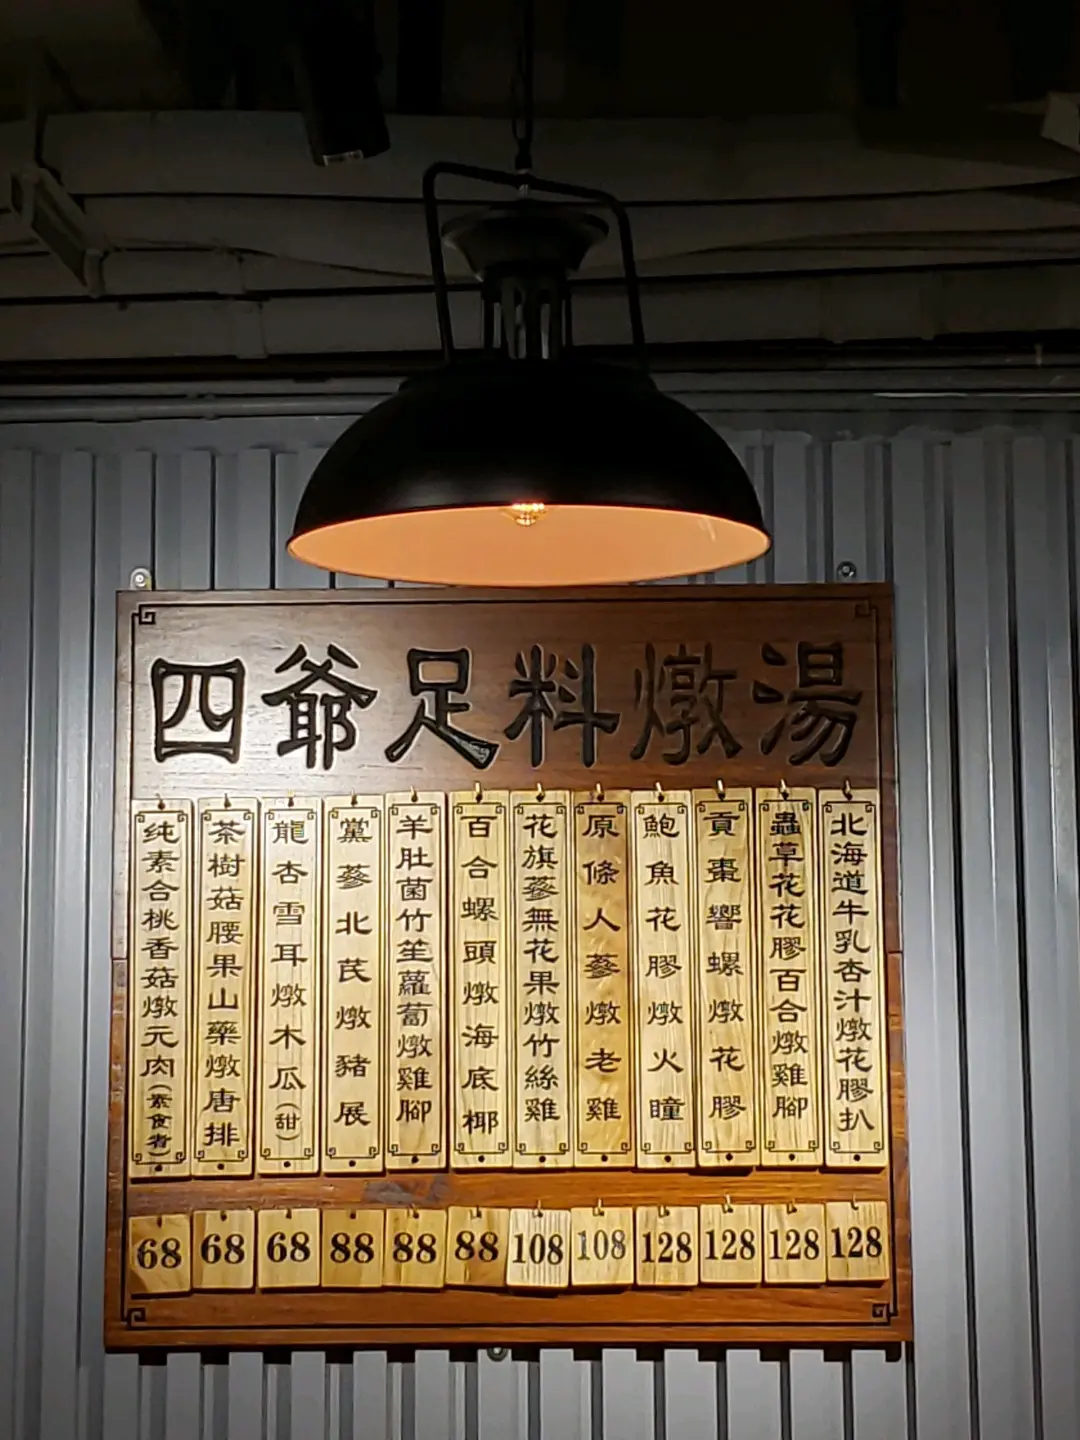 四爺足料燉湯
纯素合桃香菇燉元肉(素食者)
茶樹菇腰果山藥燉唐排
龍杏雪耳燉木瓜(甜)
黨蔘北芪燉豬展
羊肚菌竹笙蘿蔔燉雞腳
百合螺頭燉海底椰
花旗蔘無花果燉竹絲雞
原條人蔘燉老雞
鮑魚花膠燉火瞳
貢棗響螺燉花膠
蟲草花花膠百合燉雞腳
北海道牛乳杏汁燉花膠扒
68 68 68 88 88 88 108 108 128 128 128 128